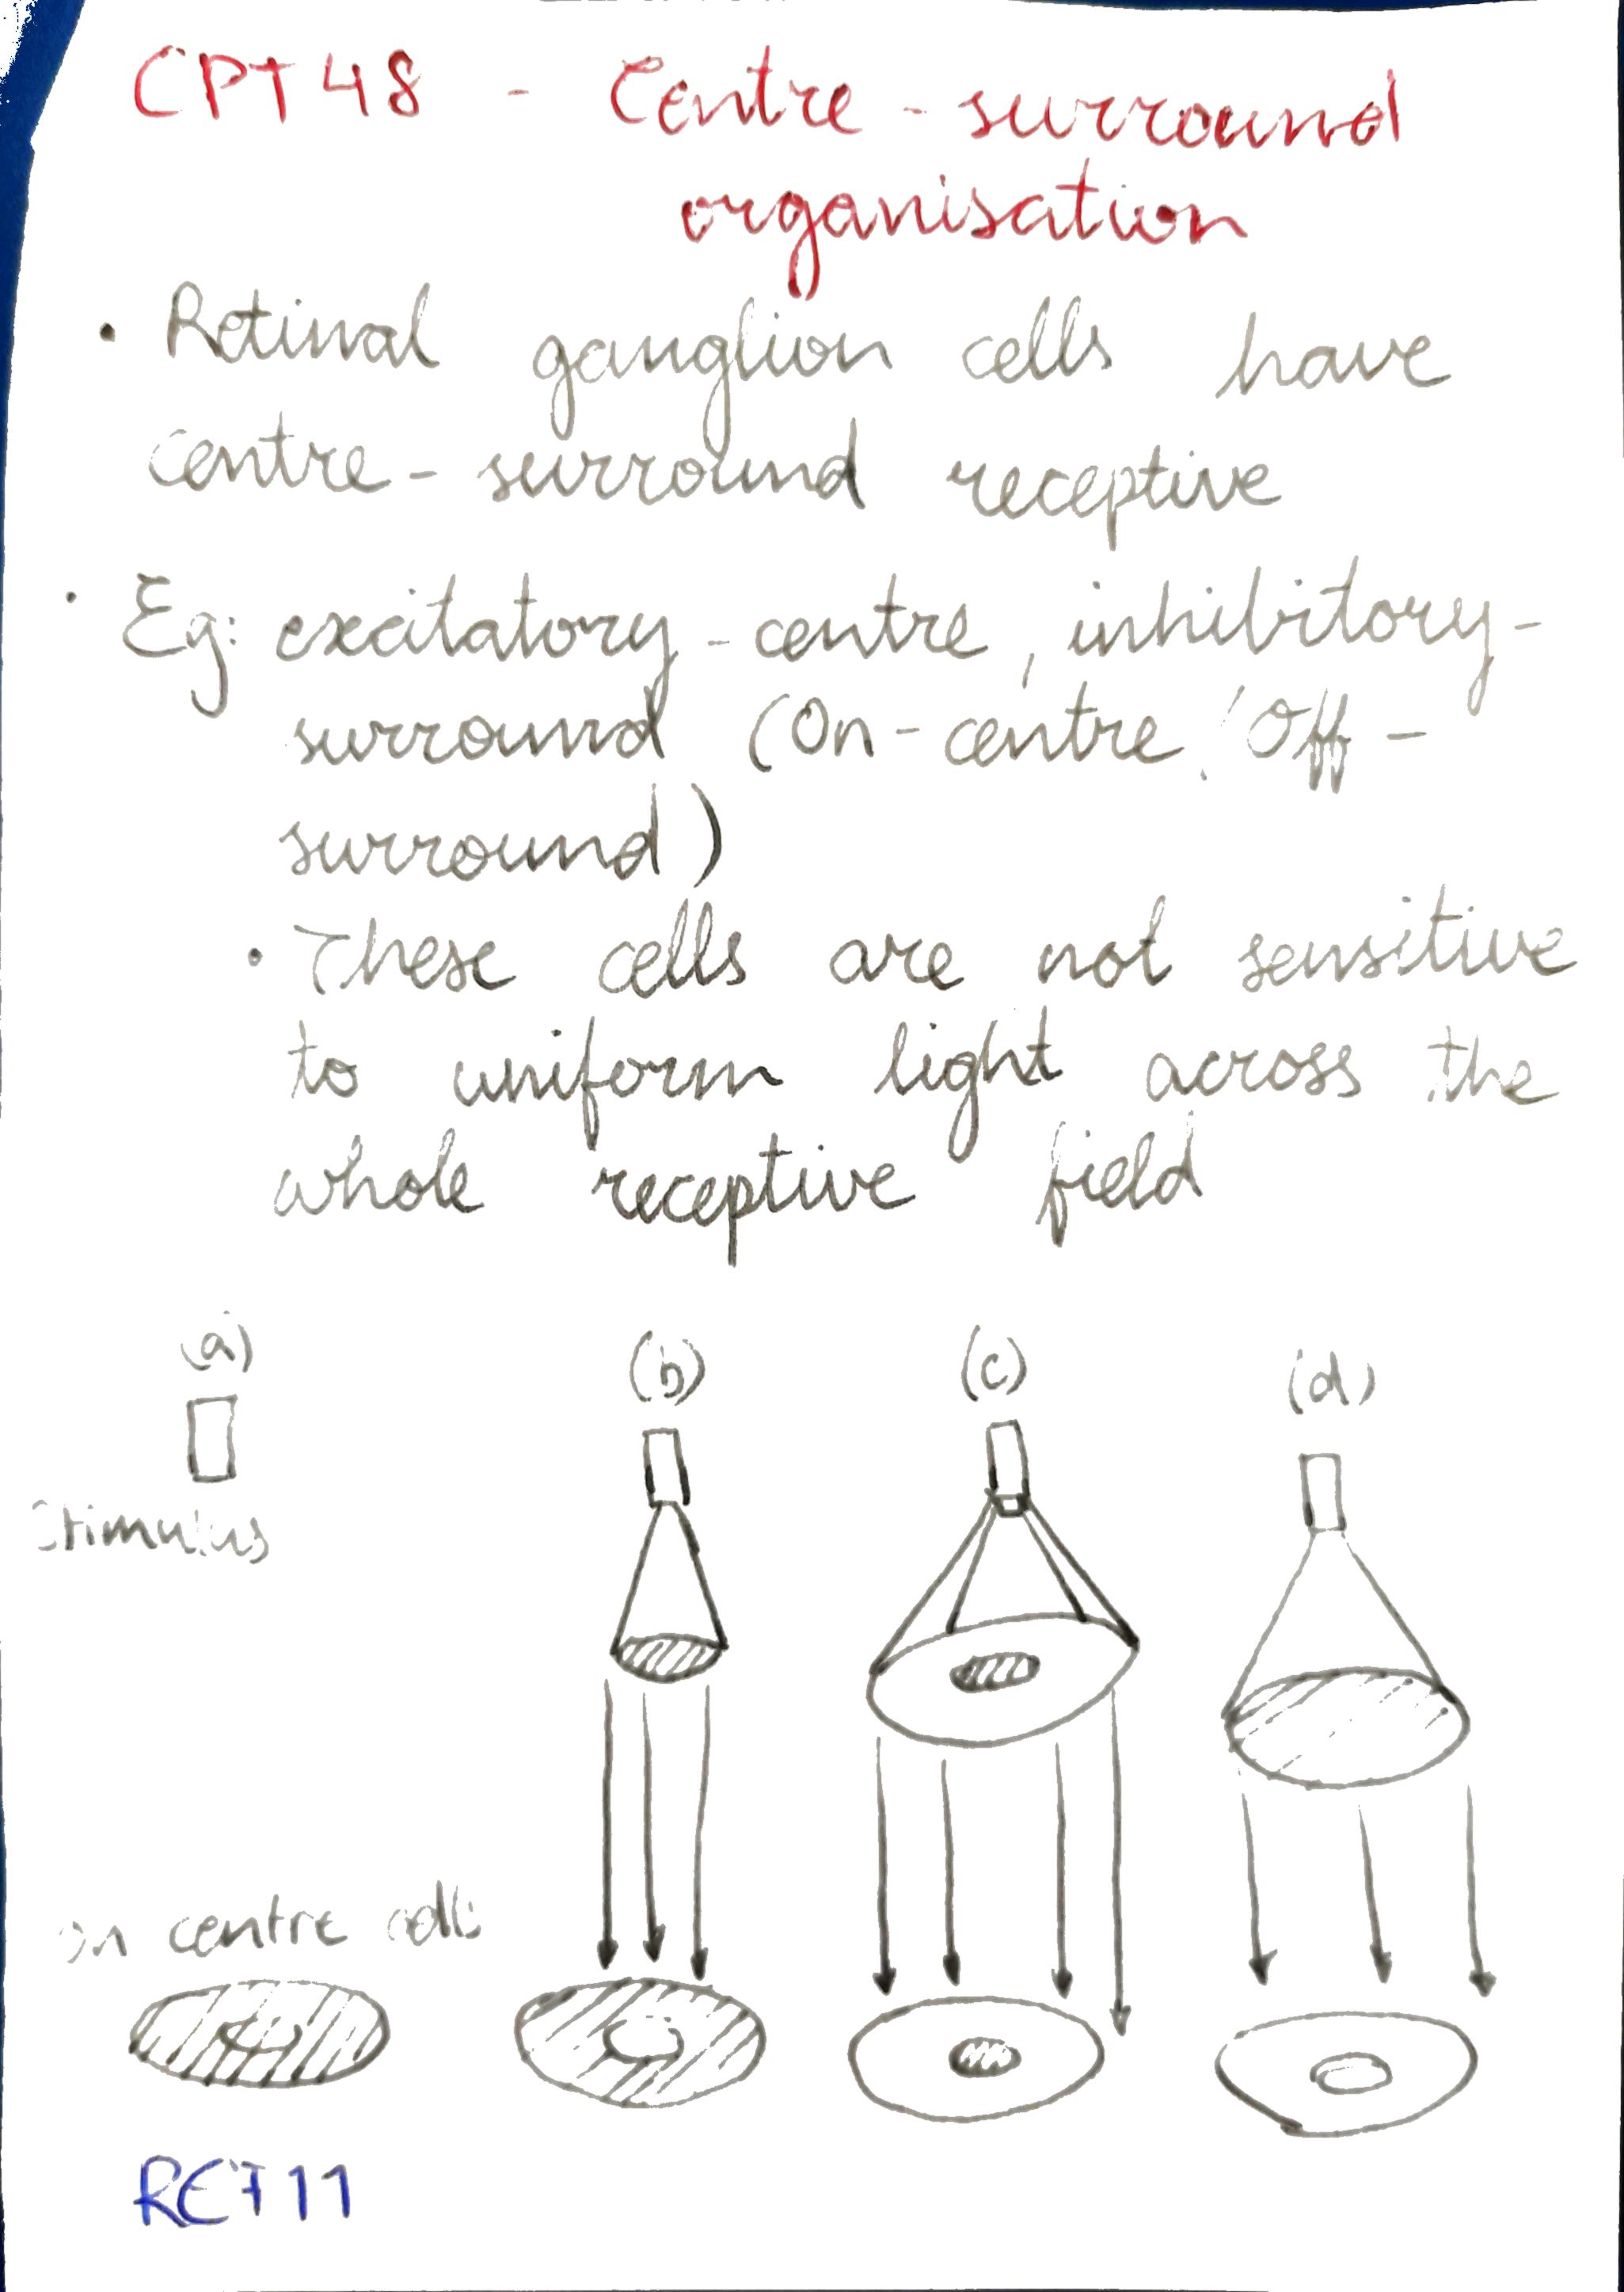 CPT48 - Centre-surround
organisation
• Retinal ganglion cells have
centre-surround receptive
• Eg: excitatory-centre, inhibitory-
surround (On-centre/Off-
surround)
• These cells are not sensitive
to uniform light across the
whole receptive field
(a) (b) (c) (d)
Stimulus
on centre cells